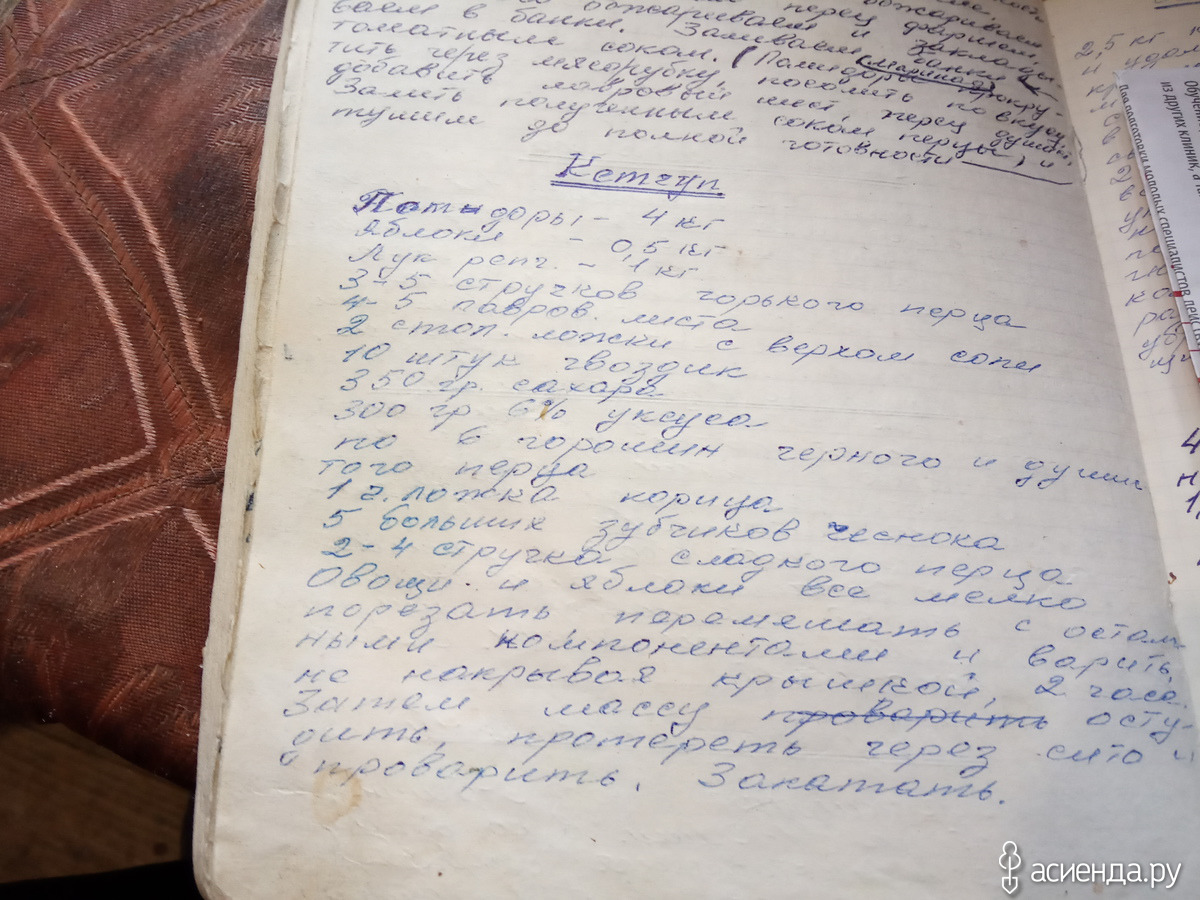 перец фаршем,
ваем и обжариваем и заклады-
ваем в банки. Заливаем
томатным соком. (Помидоры прокру-
тить через мясорубку, посолить по вкусу
добавить лавровый лист, перец душ.
Залить полученным соком перцы, и
тушим до полной готовности
Кетчуп.
Помидоры - 4 кг
Яблоки - 0,5 кг
Лук репч. - 1 кг
3-5 стручков горького перца
4-5 лавров. листа
2 стол. ложки с верхом соли
10 штук гвоздик
350 гр. сахара
300 гр 6% уксуса
по 6 горошин черного и души
того перца
1 ч. ложка корица
5 больших зубчиков чеснока
2-4 стручка сладкого перца
Овощи и яблоки все мелко
порезать перемешать с осталь
ными компонентами и варить,
не накрывая крышкой, 2 часа.
Затем массу проварить осту-
дить, протереть через сито и
проварить. Закатать.
2,5 кг
из других клиник, а
Для подготовки молодых специалистов
асиенда.ру